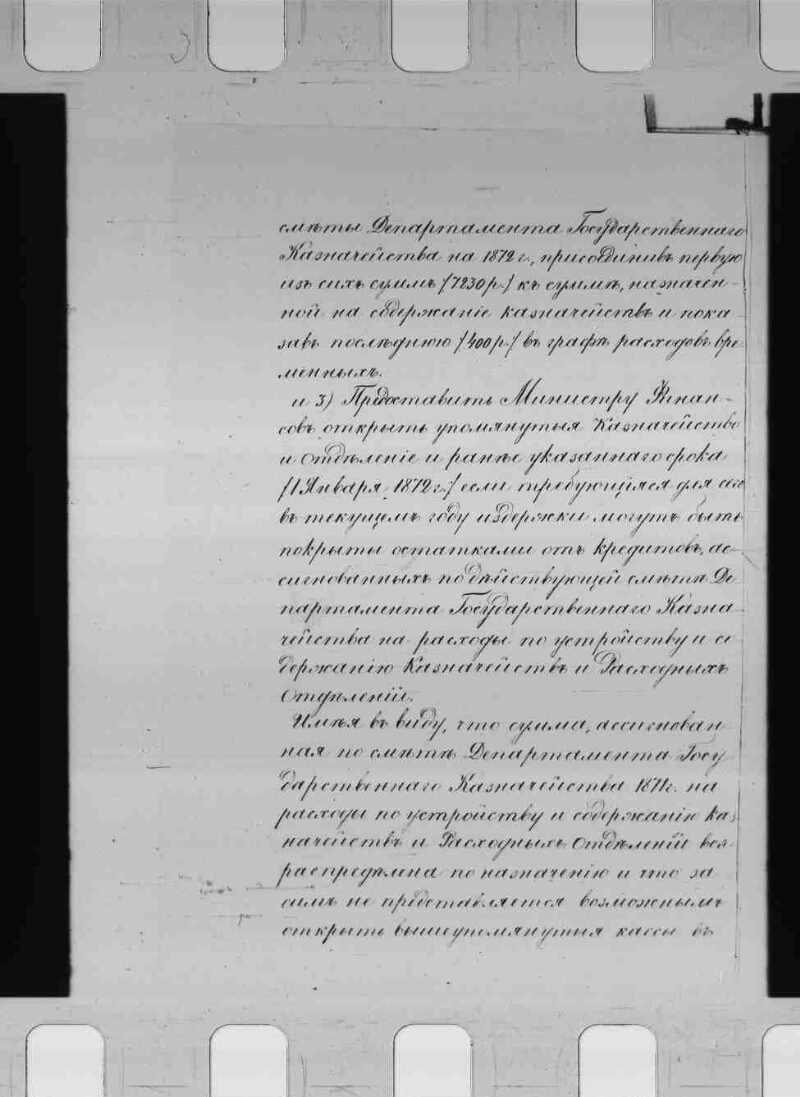 смѣты Департамента Государственнаго
Казначейства на 1872 г., присоединивъ первую
изъ сихъ суммъ /7230 р./ къ суммѣ, назначен-
ной на содержаніе казначействъ и пока-
завъ послѣднюю /400 р./ въ графѣ расходовъ вре-
менныхъ.
и 3) Предоставить Министру Финан-
совъ открыть упомянутыя Казначейство
и Отдѣленіе и ранѣе указаннаго срока
/1 Января 1872 г./ если требующіяся для сего
въ текущемъ году издержки могутъ быть
покрыты остатками отъ кредитовъ, ас-
сигнованныхъ по дѣйствующей смѣтѣ Де
партамента Государственнаго Казна
чейства на расходы по устройству и со
держанію Казначействъ и Расходныхъ
Отдѣленій.
Имѣя въ виду, что сумма, ассигнован
ная по смѣтѣ Департамента Госу
дарственнаго Казначейства 1871 г. на
расходы по устройству и содержанію Каз
начействъ и Расходныхъ Отдѣленій вся
распредѣлена по назначенію и что за
симъ не представляется возможнымъ
открыть вышеупомянутыя кассы въ